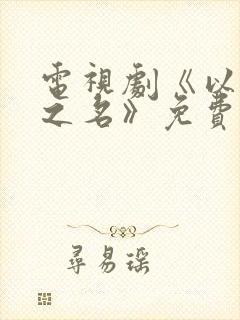 電視劇《以
之名》免費
尋易瑶